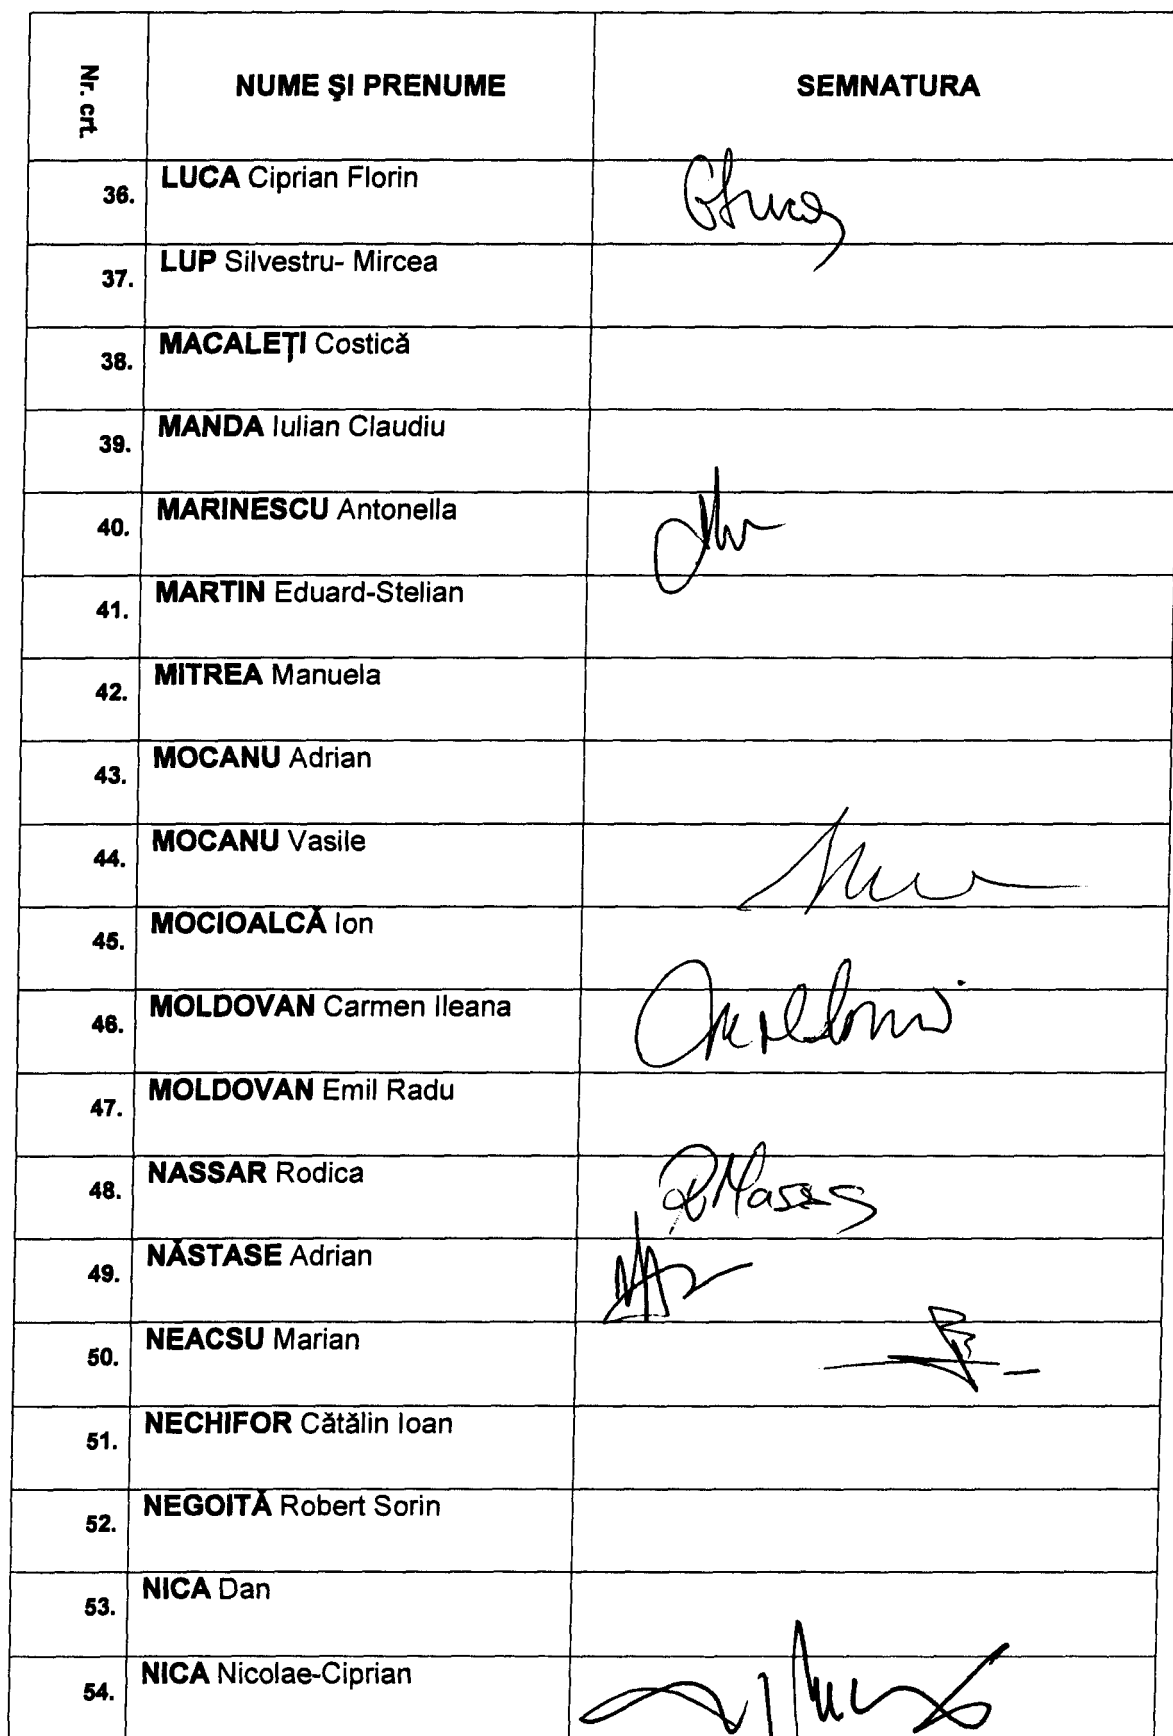 Nr. crt.
NUME ŞI PRENUME
SEMNATURA
36. LUCA Ciprian Florin
37. LUP Silvestru- Mircea
38. MACALEŢI Costică
39. MANDA Iulian Claudiu
40. MARINESCU Antonella
41. MARTIN Eduard-Stelian
42. MITREA Manuela
43. MOCANU Adrian
44. MOCANU Vasile
45. MOCIOALCĂ Ion
46. MOLDOVAN Carmen Ileana
47. MOLDOVAN Emil Radu
48. NASSAR Rodica
49. NĂSTASE Adrian
50. NEACSU Marian
51. NECHIFOR Cătălin Ioan
52. NEGOITĂ Robert Sorin
53. NICA Dan
54. NICA Nicolae-Ciprian